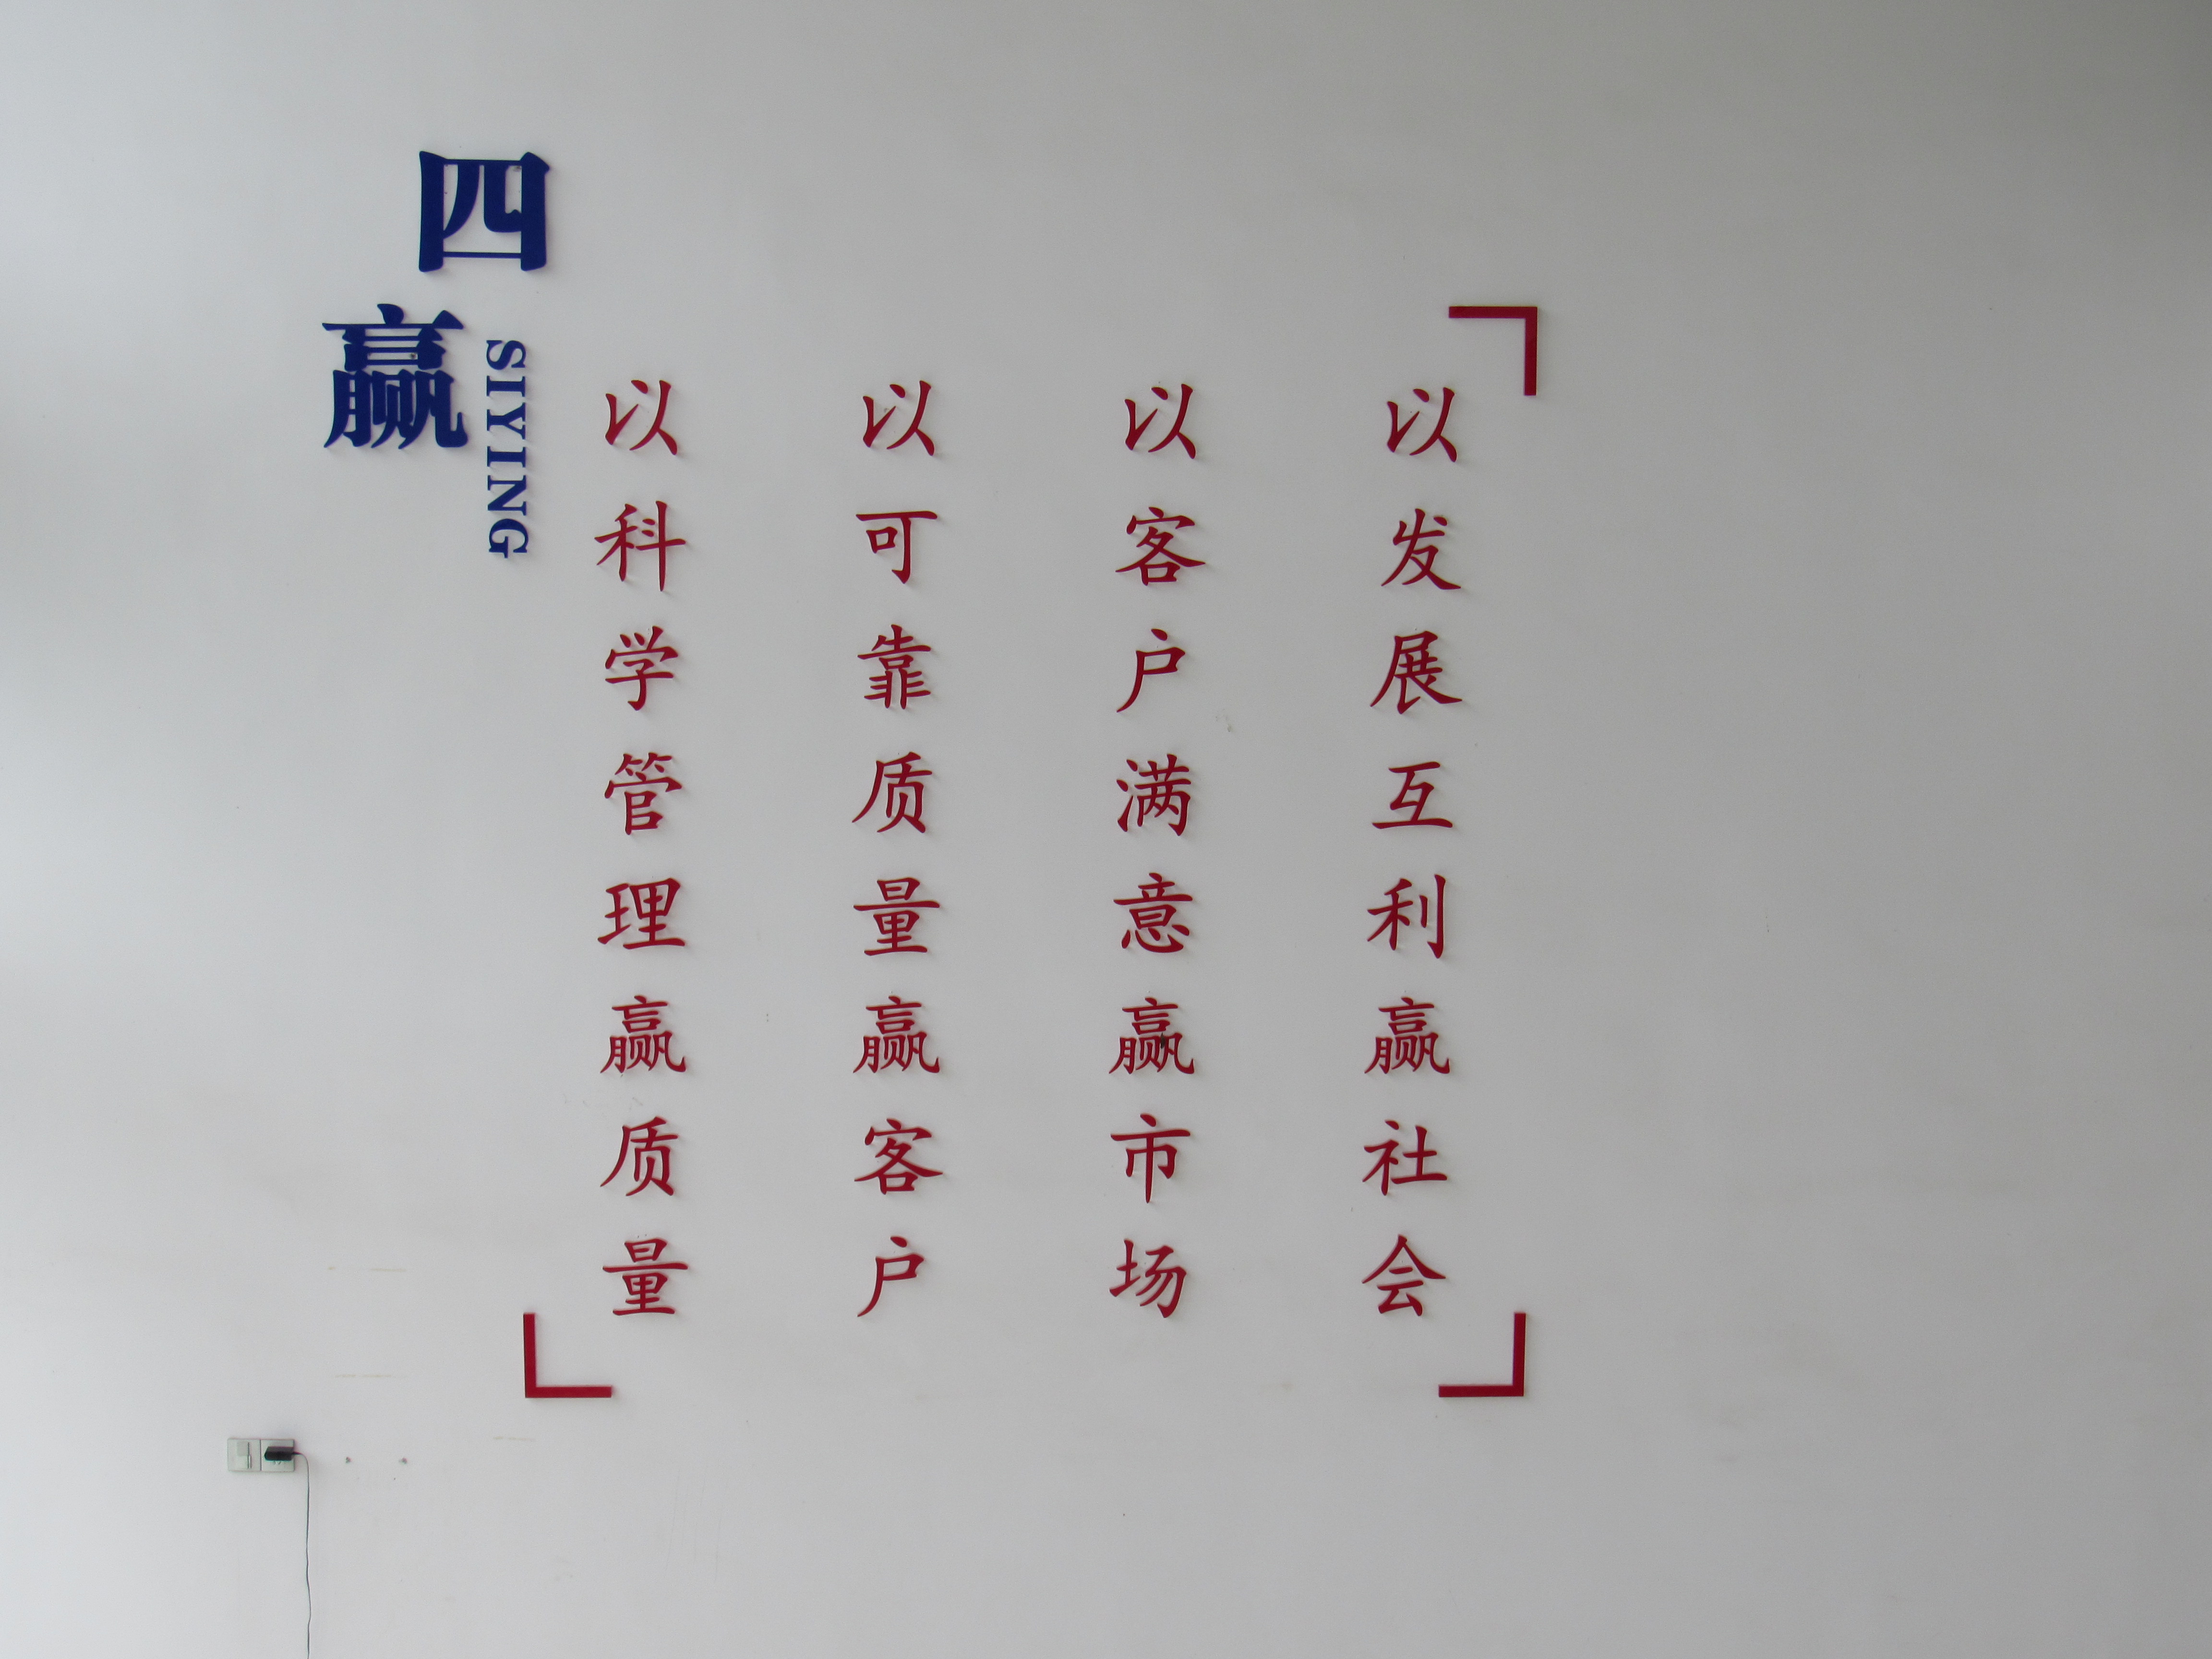 四赢
SIYING
以科学管理赢质量
以可靠质量赢客户
以客户满意赢市场
以发展互利赢社会